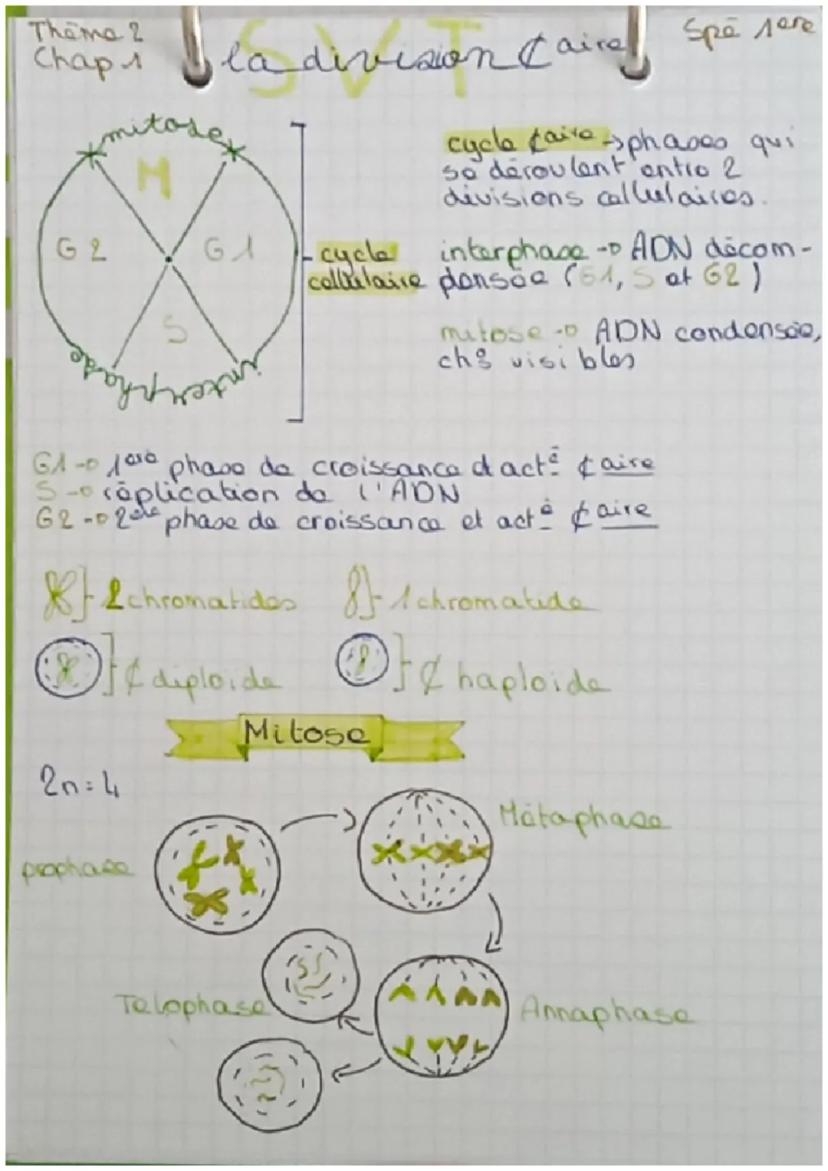 Thème 2
Chap 1
SVT
la division ¢aire
Spé 1ere
mitose
M
G2
G1
S
interphase
cycle
cellulaire
cycle ¢aire → phases qui
se déroulent entre 2
divisions cellulaires.
interphase → ADN décom-
pensée (G1, S et G2)
mitose → ADN condensée,
chs visibles
G1 → 1ère phase de croissance d'acté ¢aire
S → réplication de l'ADN
G2 → 2ele phase de croissance et acté ¢aire
} 2 chromatides
} 1 chromatide
} ¢ diploide
} ¢ haploide
Mitose
2n = 4
prophase
Métaphase
Telophase
Annaphase